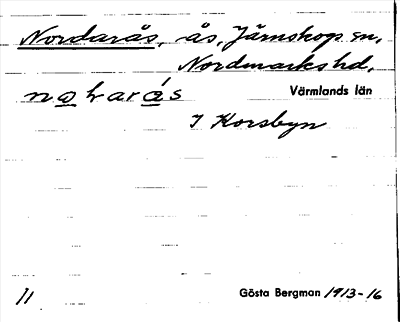 Nordarås, ås, Järnskogs sn,
Nordmarks hd.
Värmlands län
I Korsbyn
11 Gösta Bergman 1913-16